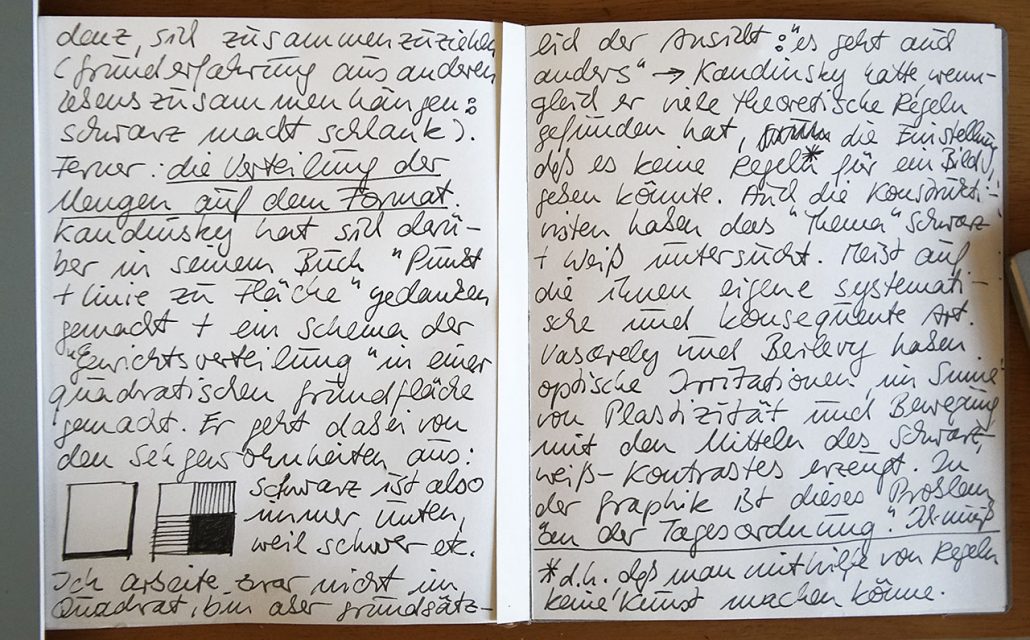 denz, sich zusammenzuziehen
(Grunderfahrung aus anderen
Lebenszusammenhängen:
schwarz macht schlank).
Ferner: die Verteilung der
Mengen auf dem Format.
Kandinsky hat sich darü-
ber in seinem Buch "Punkt
+ Linie zu Fläche" Gedanken
gemacht + ein Schema der
"Gewichtsverteilung" in einer
quadratischen Grundfläche
gemacht. Er geht dabei von
den Sehgewohnheiten aus:
Schwarz ist also
immer unten,
weil schwer etc.
Ich arbeite zwar nicht im
Quadrat, bin aber grundsätz-
lich der Ansicht: "es geht auch
anders" → Kandinsky hatte, wenn-
gleich er viele theoretische Regeln
gefunden hat, die Einstellung,
daß es keine Regeln* für ein Bild
geben könnte. Auch die Konstrukti-
visten haben das "Thema" Schwarz
+ weiß untersucht. Meist auf
die ihnen eigene systemati-
sche und konsequente Art.
Vasarely und Berlevy haben
optische Irritationen, im Sinne
von Plastizität und Bewegung
mit den Mitteln des schwarz,
weiß-Kontrastes erzeugt. In
der Graphik ist dieses Problem
"an der Tagesordnung".
*d.h. daß man mithilfe von Regeln
keine Kunst machen könne.